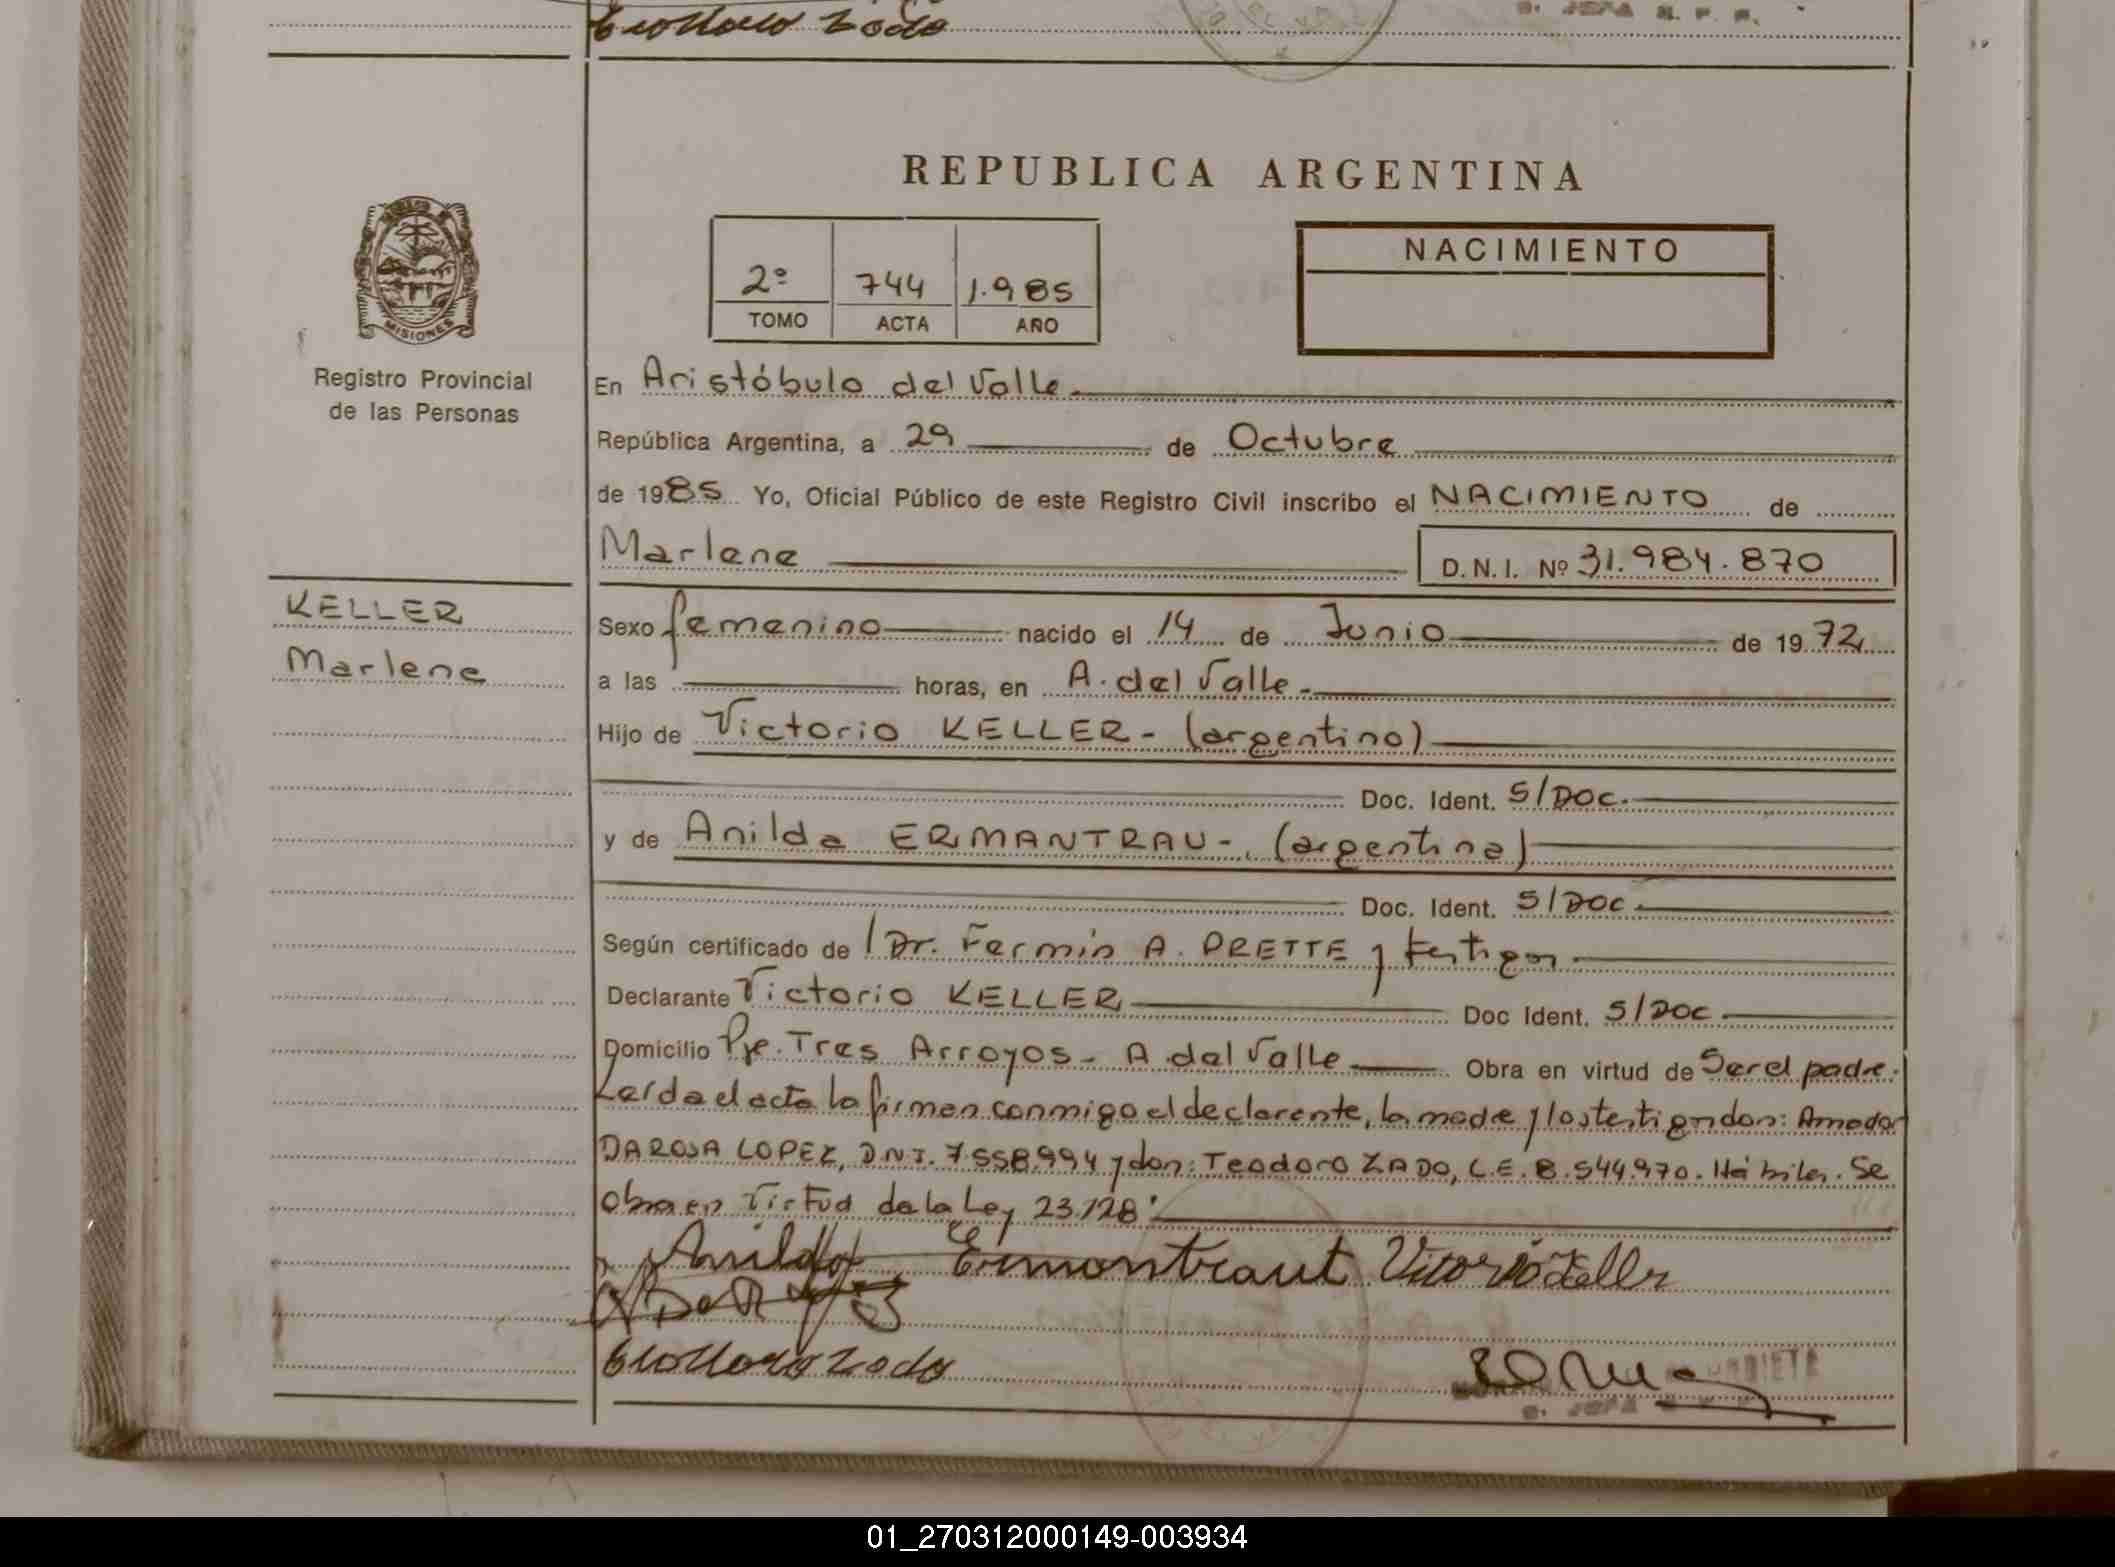 REPUBLICA ARGENTINA
2º 744 1.985
TOMO ACTA AÑO
NACIMIENTO
MISIONES
Registro Provincial
de las Personas
KELLER
Marlene
En Aristóbulo del Valle.
República Argentina, a 29 de Octubre
de 1985 Yo, Oficial Público de este Registro Civil inscribo el NACIMIENTO de
Marlene D.N.I. Nº 31.984.870
Sexo femenino nacido el 14 de Junio de 1972
a las horas, en A. del Valle.
Hijo de Victorio KELLER - (argentino)
Doc. Ident. S/DOC.
y de Anilda ERMANTRAU-. (argentina)
Doc. Ident. S/DOC.
Según certificado de / Dr. Fermín A. PRETTE y testigos.
Declarante Victorio KELLER Doc Ident. S/DOC.
Domicilio Pje. Tres Arroyos - A. del Valle Obra en virtud de Ser el padre.
Leída el acta la firman conmigo el declarante, la madre y los testigos don: Amador
DAROSA LOPEZ, D.N.I. 7.558.994 y don: Teodoro ZADO, L.E. 8.544.970. Hábiles. Se
obra en virtud de la Ley 23.128.
Anilda Ermontraut Vitorio Keller
01_270312000149-003934